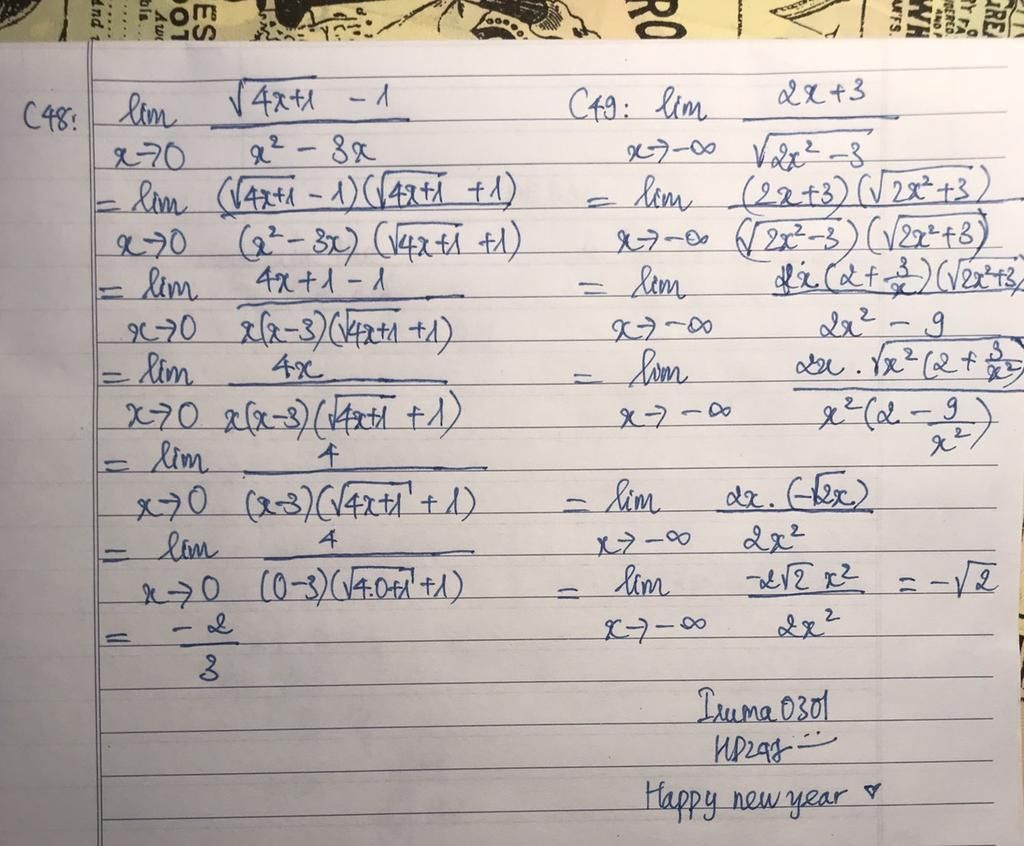 C48: lim x→0 (√(4x+1) - 1)/(x² - 3x)
= lim x→0 ((√(4x+1) - 1)(√(4x+1) + 1))/((x² - 3x)(√(4x+1) + 1))
= lim x→0 (4x+1-1)/(x(x-3)(√(4x+1) + 1))
= lim x→0 (4x)/(x(x-3)(√(4x+1) + 1))
= lim x→0 (4)/((x-3)(√(4x+1) + 1))
= lim x→0 (4)/((0-3)(√(4.0+1) + 1))
= (-2)/(3)
C49: lim x→-∞ (2x+3)/(√(2x² - 3))
= lim x→-∞ ((2x+3)(√(2x²+3)))/((√(2x²-3))(√(2x²+3)))
= lim x→-∞ (x(2 + 3/x)(√(2x²+3)))/(2x² - 9)
= lim x→-∞ (2x . √(x²(2 + 3/x²)))/(x²(2 - 9/x²))
= lim x→-∞ (2x . (-√2x))/(2x²)
= lim x→-∞ (-2√2 x²)/(2x²) = -√2
Iruma0301
Happy new year